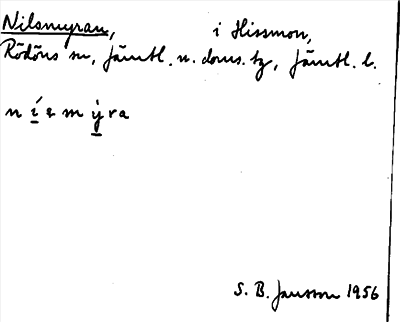 Nilsmyran, i Hissmon,
Rödöns sn, Jämtl. n. doms. tg, Jämtl. l.
n í s m ý r a
S. B. Jansson 1956